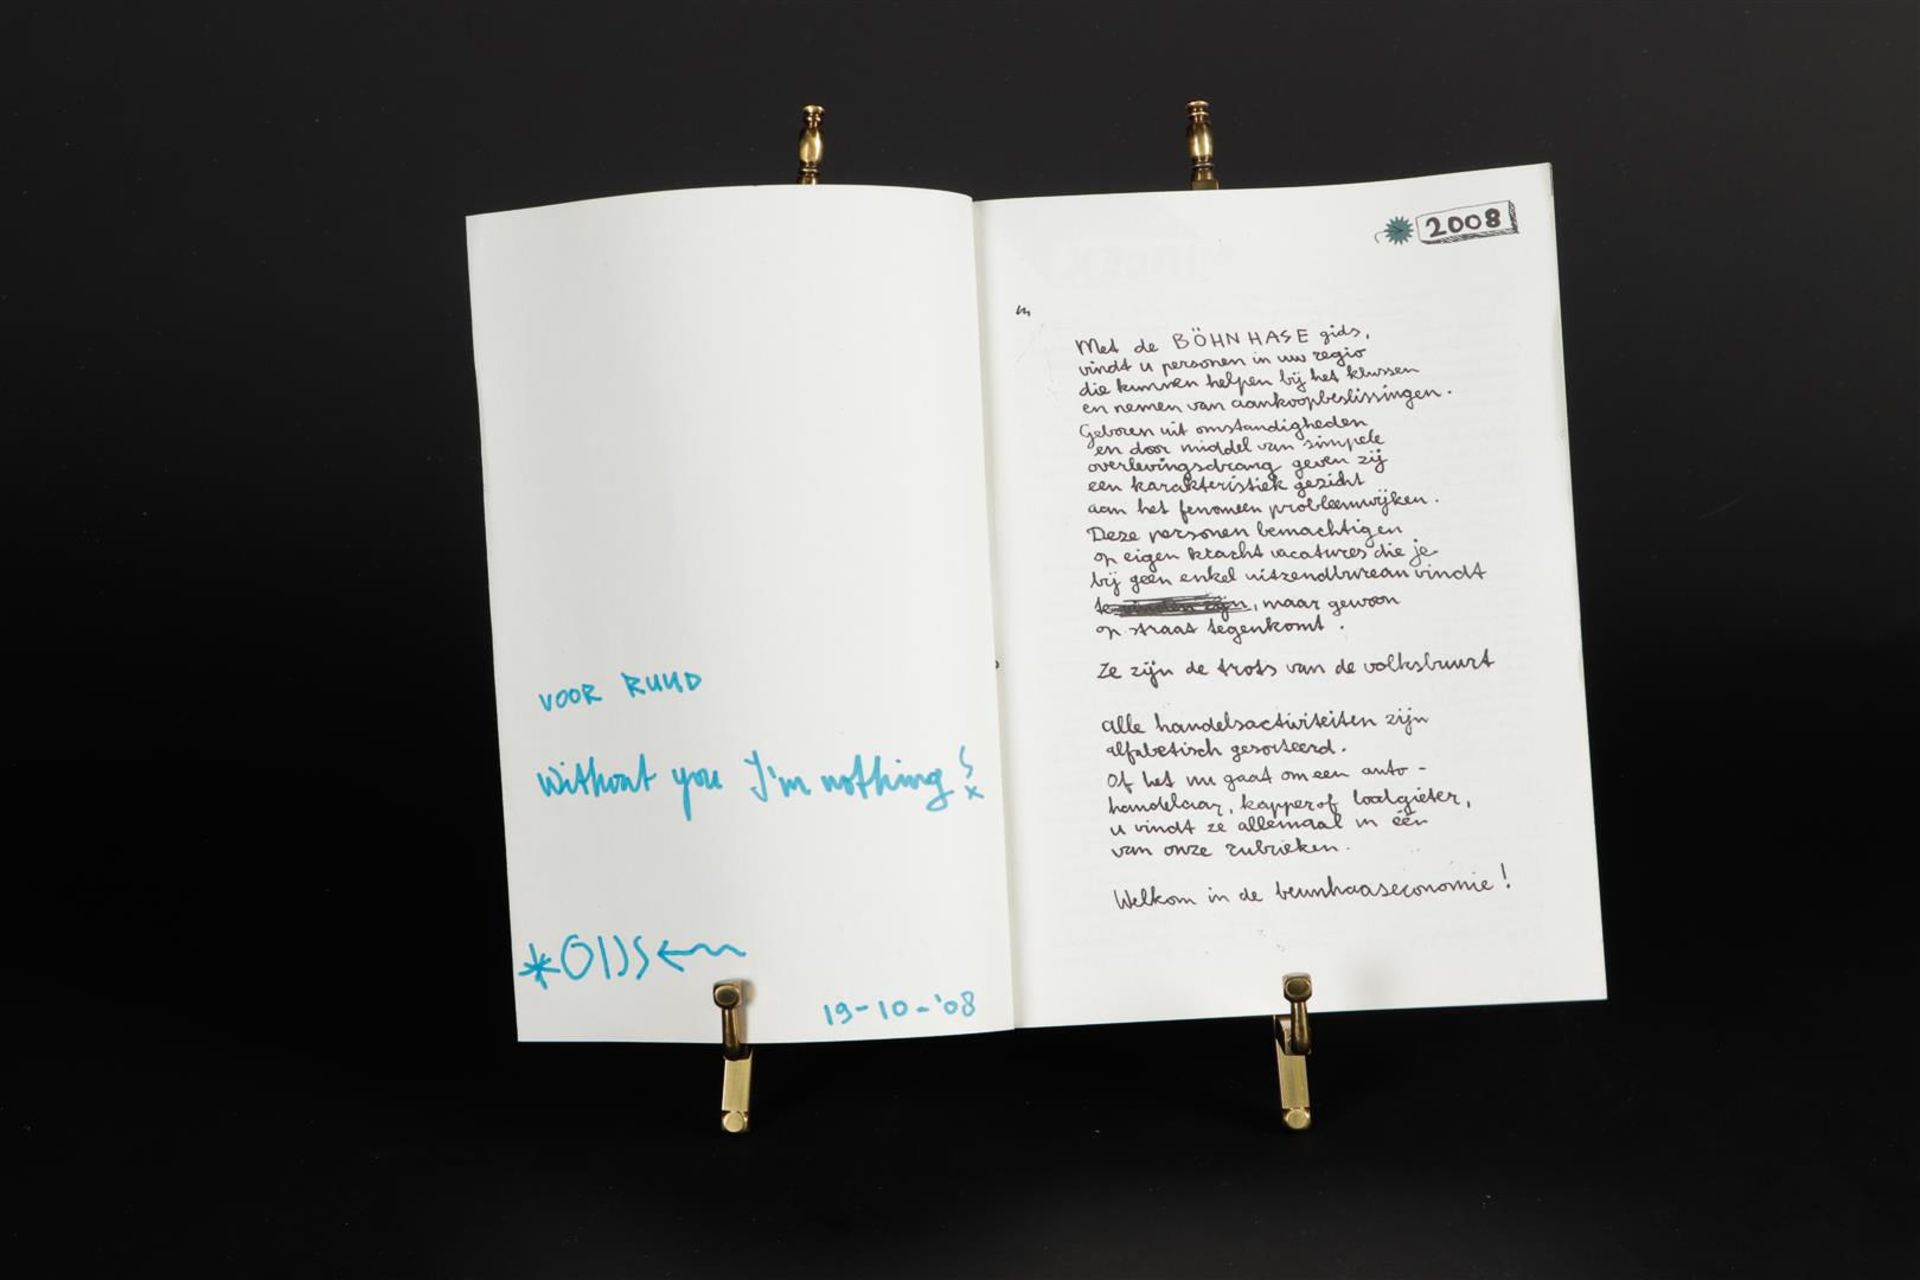 VOOR RUUD
Without you I'm nothing!
x
*GIJS
19-10-'08
2008
Met de BÖHNHASE gids,
vindt u personen in uw regio
die kunnen helpen bij het klussen
en nemen van aankoopbeslissingen.
Geboren uit omstandigheden
en door middel van simpele
overlevingsdrang geven zij
een karakteristiek gezicht
aan het fenomeen probleemwijken.
Deze personen bemachtigen
op eigen kracht vacatures die je
bij geen enkel uitzendbureau vindt
te vinden zijn, maar gewoon
op straat tegenkomt.
Ze zijn de trots van de volksbuurt
Alle handelsactiviteiten zijn
alfabetisch gesorteerd.
Of het nu gaat om een auto-
handelaar, kapper of loodgieter,
u vindt ze allemaal in één
van onze rubrieken.
Welkom in de beunhaaseconomie!